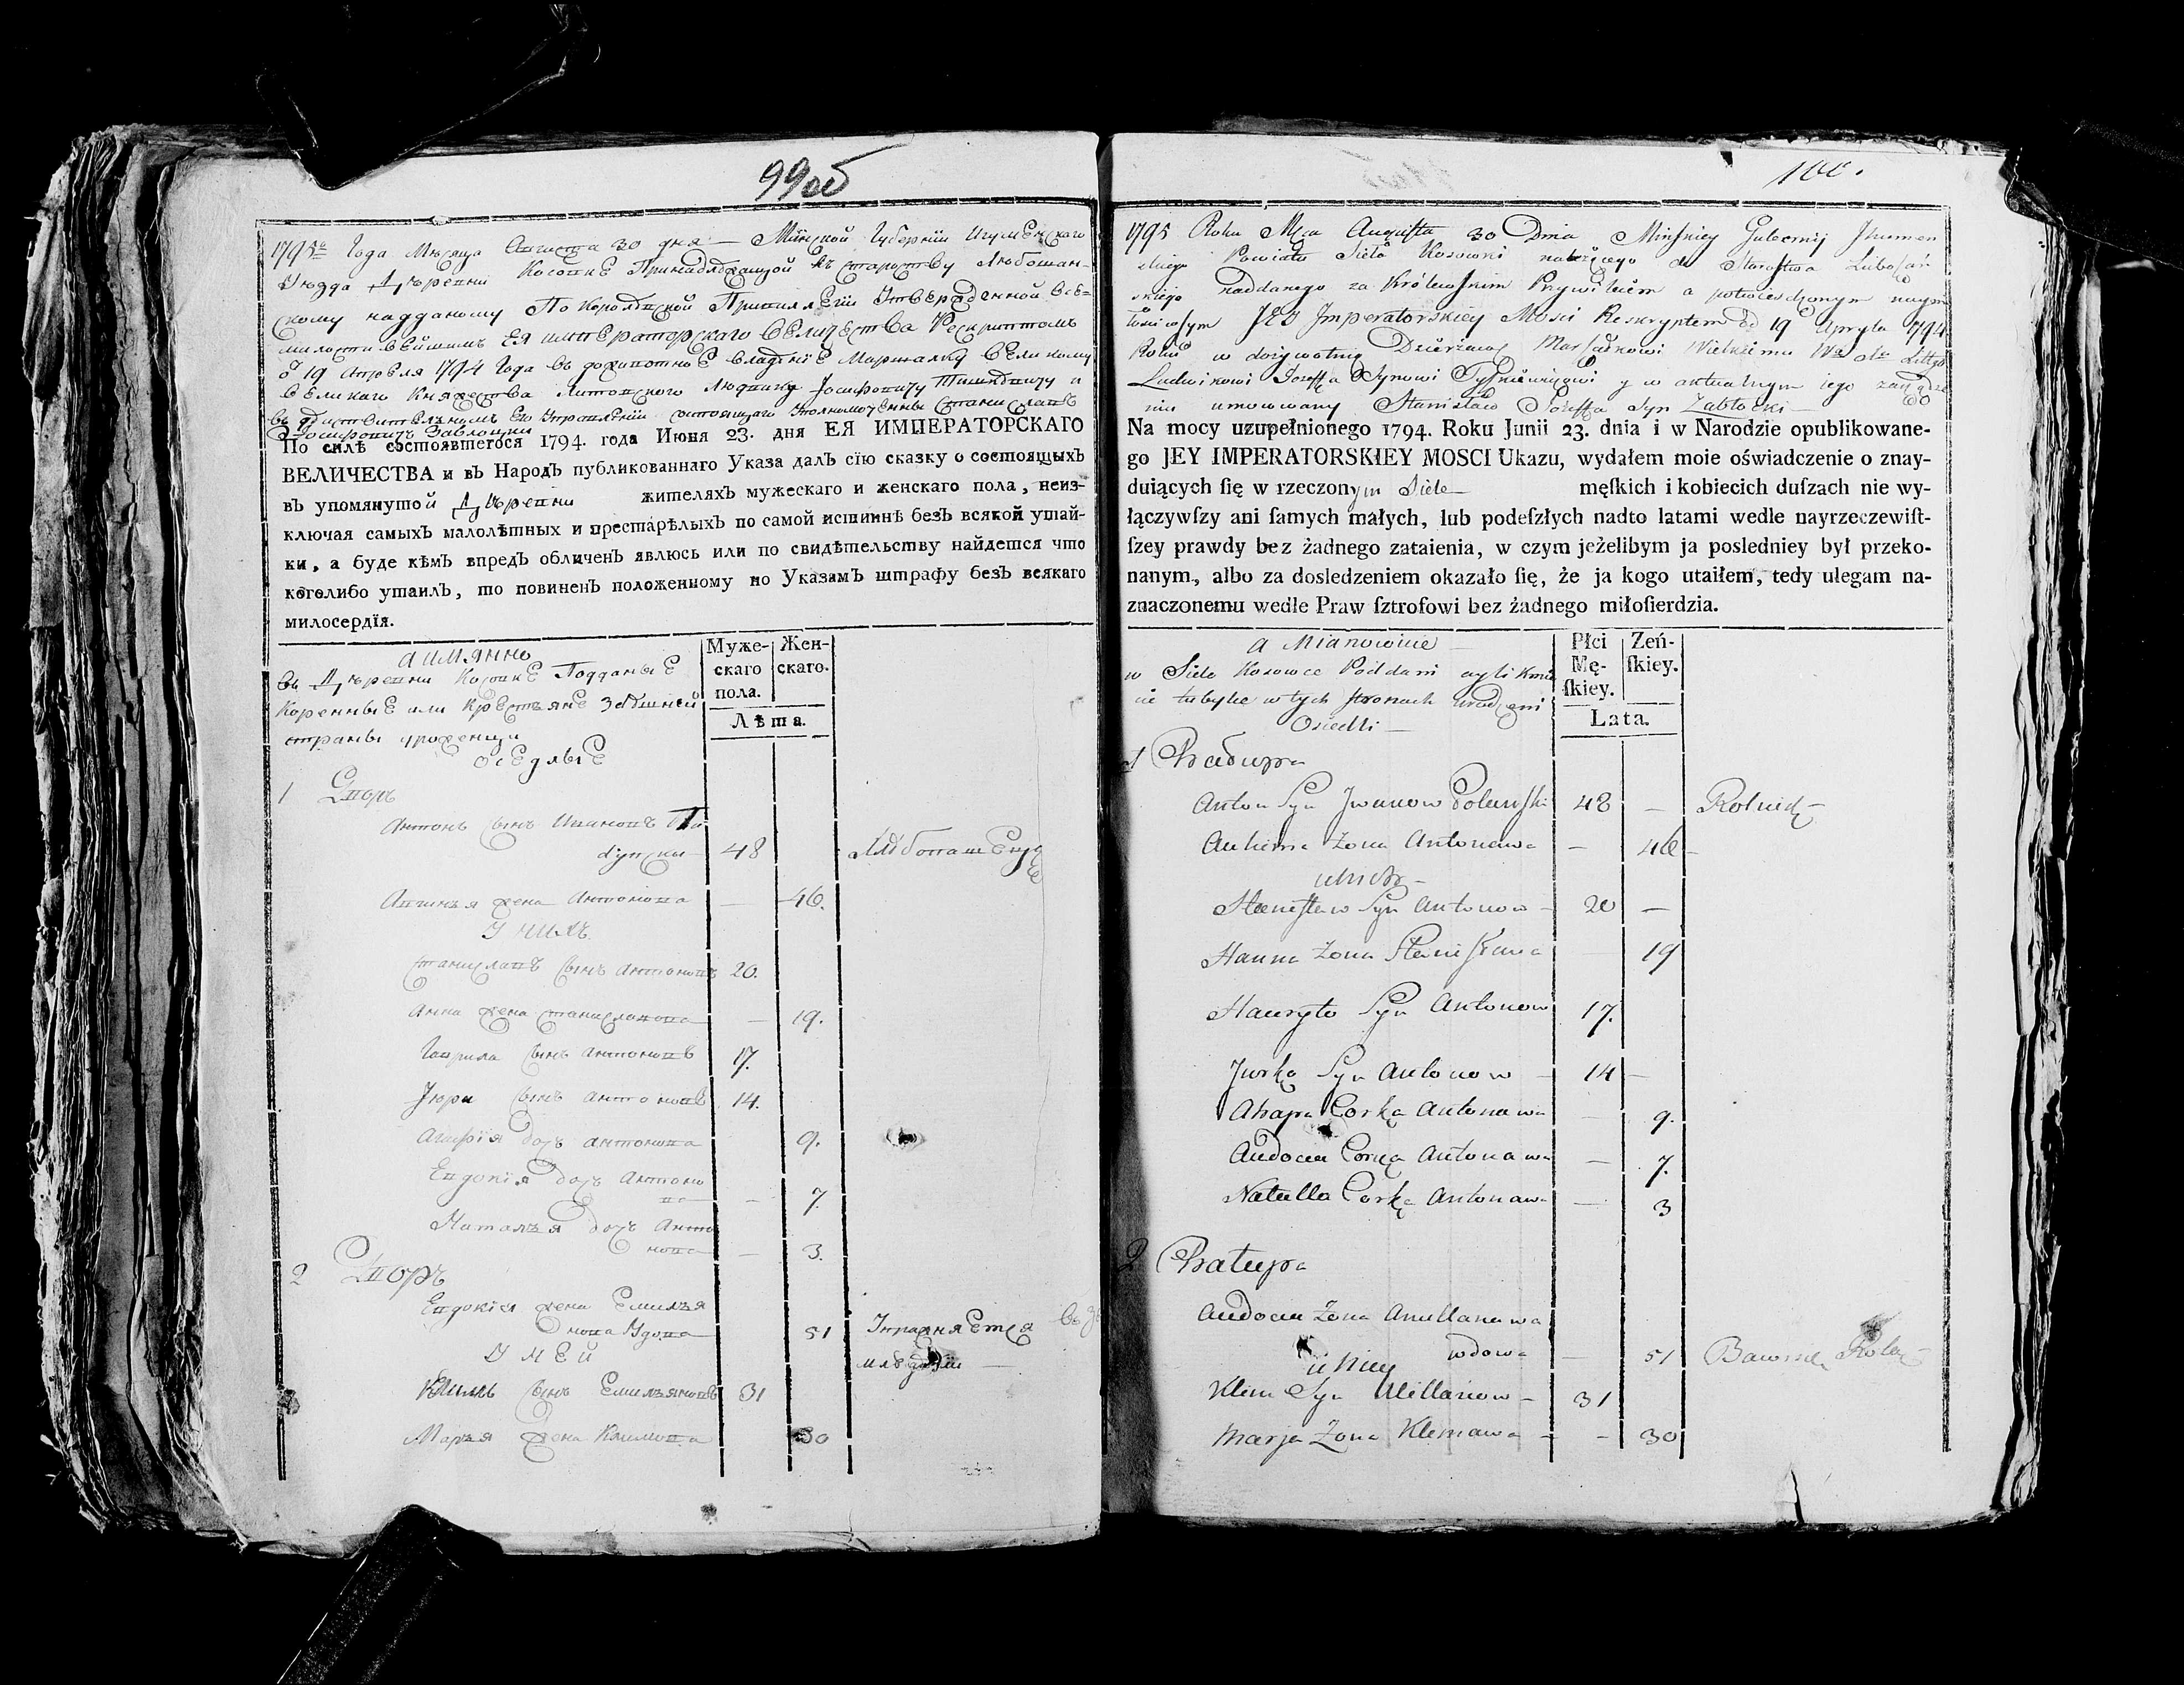 99об
1795го Года Мѣсяца Августа 30 дня — Минской Губернїи Игуменскаго
Уѣзда Деревни Косовке Принадлежащой къ староству Любошан-
скому надданому По Королевской Привиллегїи Утвержденной Все-
милостивейшимъ ЕЯ императорскаго Величества Рескриптомъ
от 19 Апреля 1794 Года въ доживотное владенїе Маршалку Великому
Великаго Княжества Литовского Людвику Іосифовичу Тишкевичу и
въ действительномъ Его Управленїи состоящаго Уполномоченны Станиславъ
Іосифовичъ Заблоцки
По силѣ состоявшегося 1794. года Июня 23. дня ЕЯ ИМПЕРАТОРСКАГО
ВЕЛИЧЕСТВА и въ Народъ публикованнаго Указа далъ сїю сказку о состоящыхъ
въ упомянутой Деревни жителяхъ мужескаго и женскаго пола, неиз-
ключая самыхъ малолѣтныхъ и престарѣлыхъ по самой истиннѣ безъ всякой утай-
ки, а буде кѣмъ впредъ обличенъ явлюсь или по свидѣтельству найдется что
коголибо утаилъ, то повиненъ положенному по Указамъ штрафу безъ всякаго
милосердїя.
а имянно
въ Деревни Косовке Подданые
Коренные или крестьяне здешней
страны уроженцы
оседлые
Муже-
скаго
пола.
Жен-
скаго.
Лѣта.
1 Дворъ
Антонъ сынъ Ивановъ По-
лупски 48 Хлебопашец
Авгинья жена Антонова — 46.
У нихъ
Станиславъ сынъ Антоновъ 20.
Анна жена Станиславова — 19.
Гаврила сынъ Антоновъ 17.
Юри сынъ Антоновъ 14.
Агафїя дочъ Антонова 9.
Евдокїя дочъ Антоно
ва — 7.
Наталья дочъ Анто
нова — 3.
2 Дворъ
Евдокїя жена Емилья
нова Удова 51 Упражняется въ
У Ней
Климъ сынъ Емильяновъ 31
Марья жена Климова 30
100.
1795 Roku Mca Augusta 30 Dnia Minskiey Gubernij Ihumen
skiego Powiatu Sieła Kosowki należącego do Starostwa Luboszań
skiego naddanego za Królewskim Przywileiem a potwierdzonym naym
iłościwszym JEJ Imperatorskiey Mosci Reskryptem od 19 Apryla 1794
Roku w dożywotnie Dzierżawę Marszałkowi Wielkiemu Wo Xa Littgo
Ludwikowi Jozeffa Synowi Tyszkiewiczowi y w aktualnym iego zarządze
niu umocowany Stanisław Jozeffa Syn Zabłocki —
Na mocy uzupełnionego 1794. Roku Junii 23. dnia i w Narodzie opublikowane-
go JEY IMPERATORSKIEY MOSCI Ukazu, wydałem moie oświadczenie o znay-
duiących ſię w rzeczonym Siele męſkich i kobiecich duſzach nie wy-
łączywſzy ani ſamych małych, lub podeſzłych nadto latami wedle nayrzeczewiſt-
ſzey prawdy bez żadnego zataienia, w czym jeżelibym ja posledniey był przeko-
nanym, albo za dosledzeniem okazało ſię, że ja kogo utaiłem, tedy ulegam na-
znaczonemu wedle Praw ſztrofowi bez żadnego miłoſierdzia.
a Mianowicie
w Siele Kosowce Poddani czyli
w tych stronach urodzeni
Osiedli —
Płci
Mę-
ſkiey.
Zeń-
ſkiey.
Lata.
1 Chałupa
Anton Syn Iwanow Polupski 48 — Rolnik
Auhinia Żona Antonowa — 46
u nich
Stanisław Syn Antonow 20 —
Hanna Żona Stanisława 19
Hauryło Syn Antonow 17.
Jurka Syn Antonow 14
Ahapa Corka Antonawa 9.
Audocia Corka Antonawa — 7.
Natalla Corka Antonawa — 3
2 Chałupa
Audocia Żona Amillanawa
wdowa — 51
u Niey
Klim Syn Millanow 31
Marja Żona Klimawa — 30